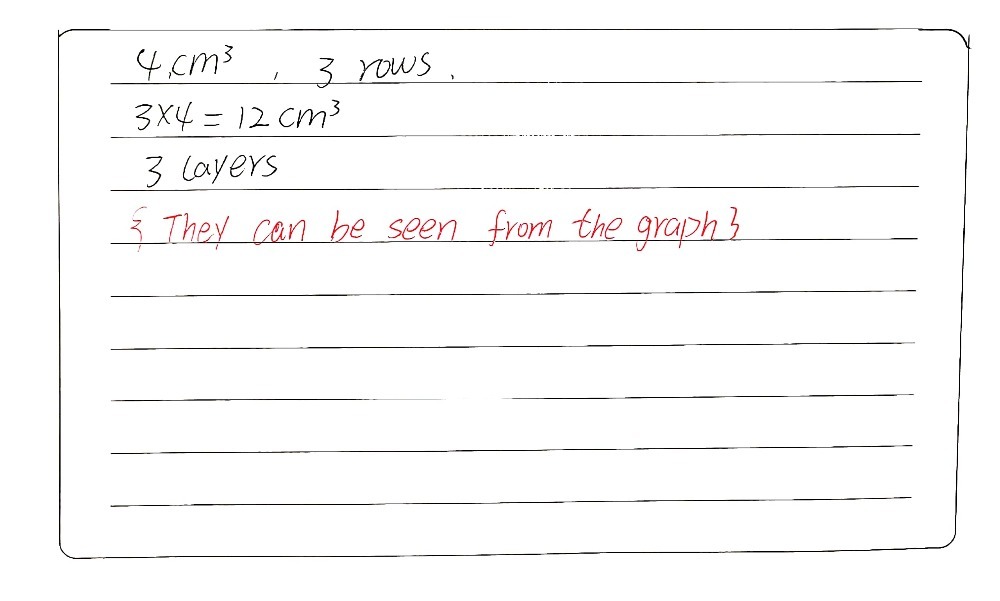 4.cm³ , 3 rows.
3×4 = 12 cm³
3 layers
{ They can be seen from the graph }